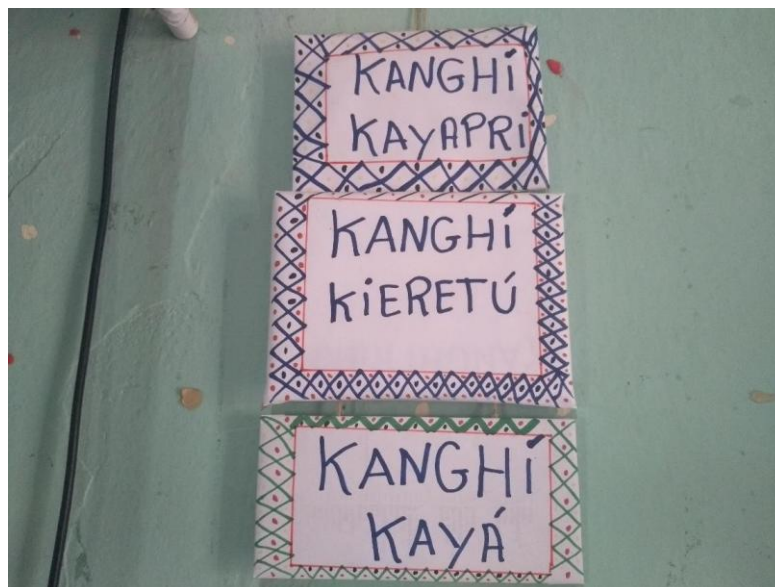 KANGHÍ
KAYAPRÍ
KANGHÍ
KiERETÚ
KANGHÍ
KAYÁ